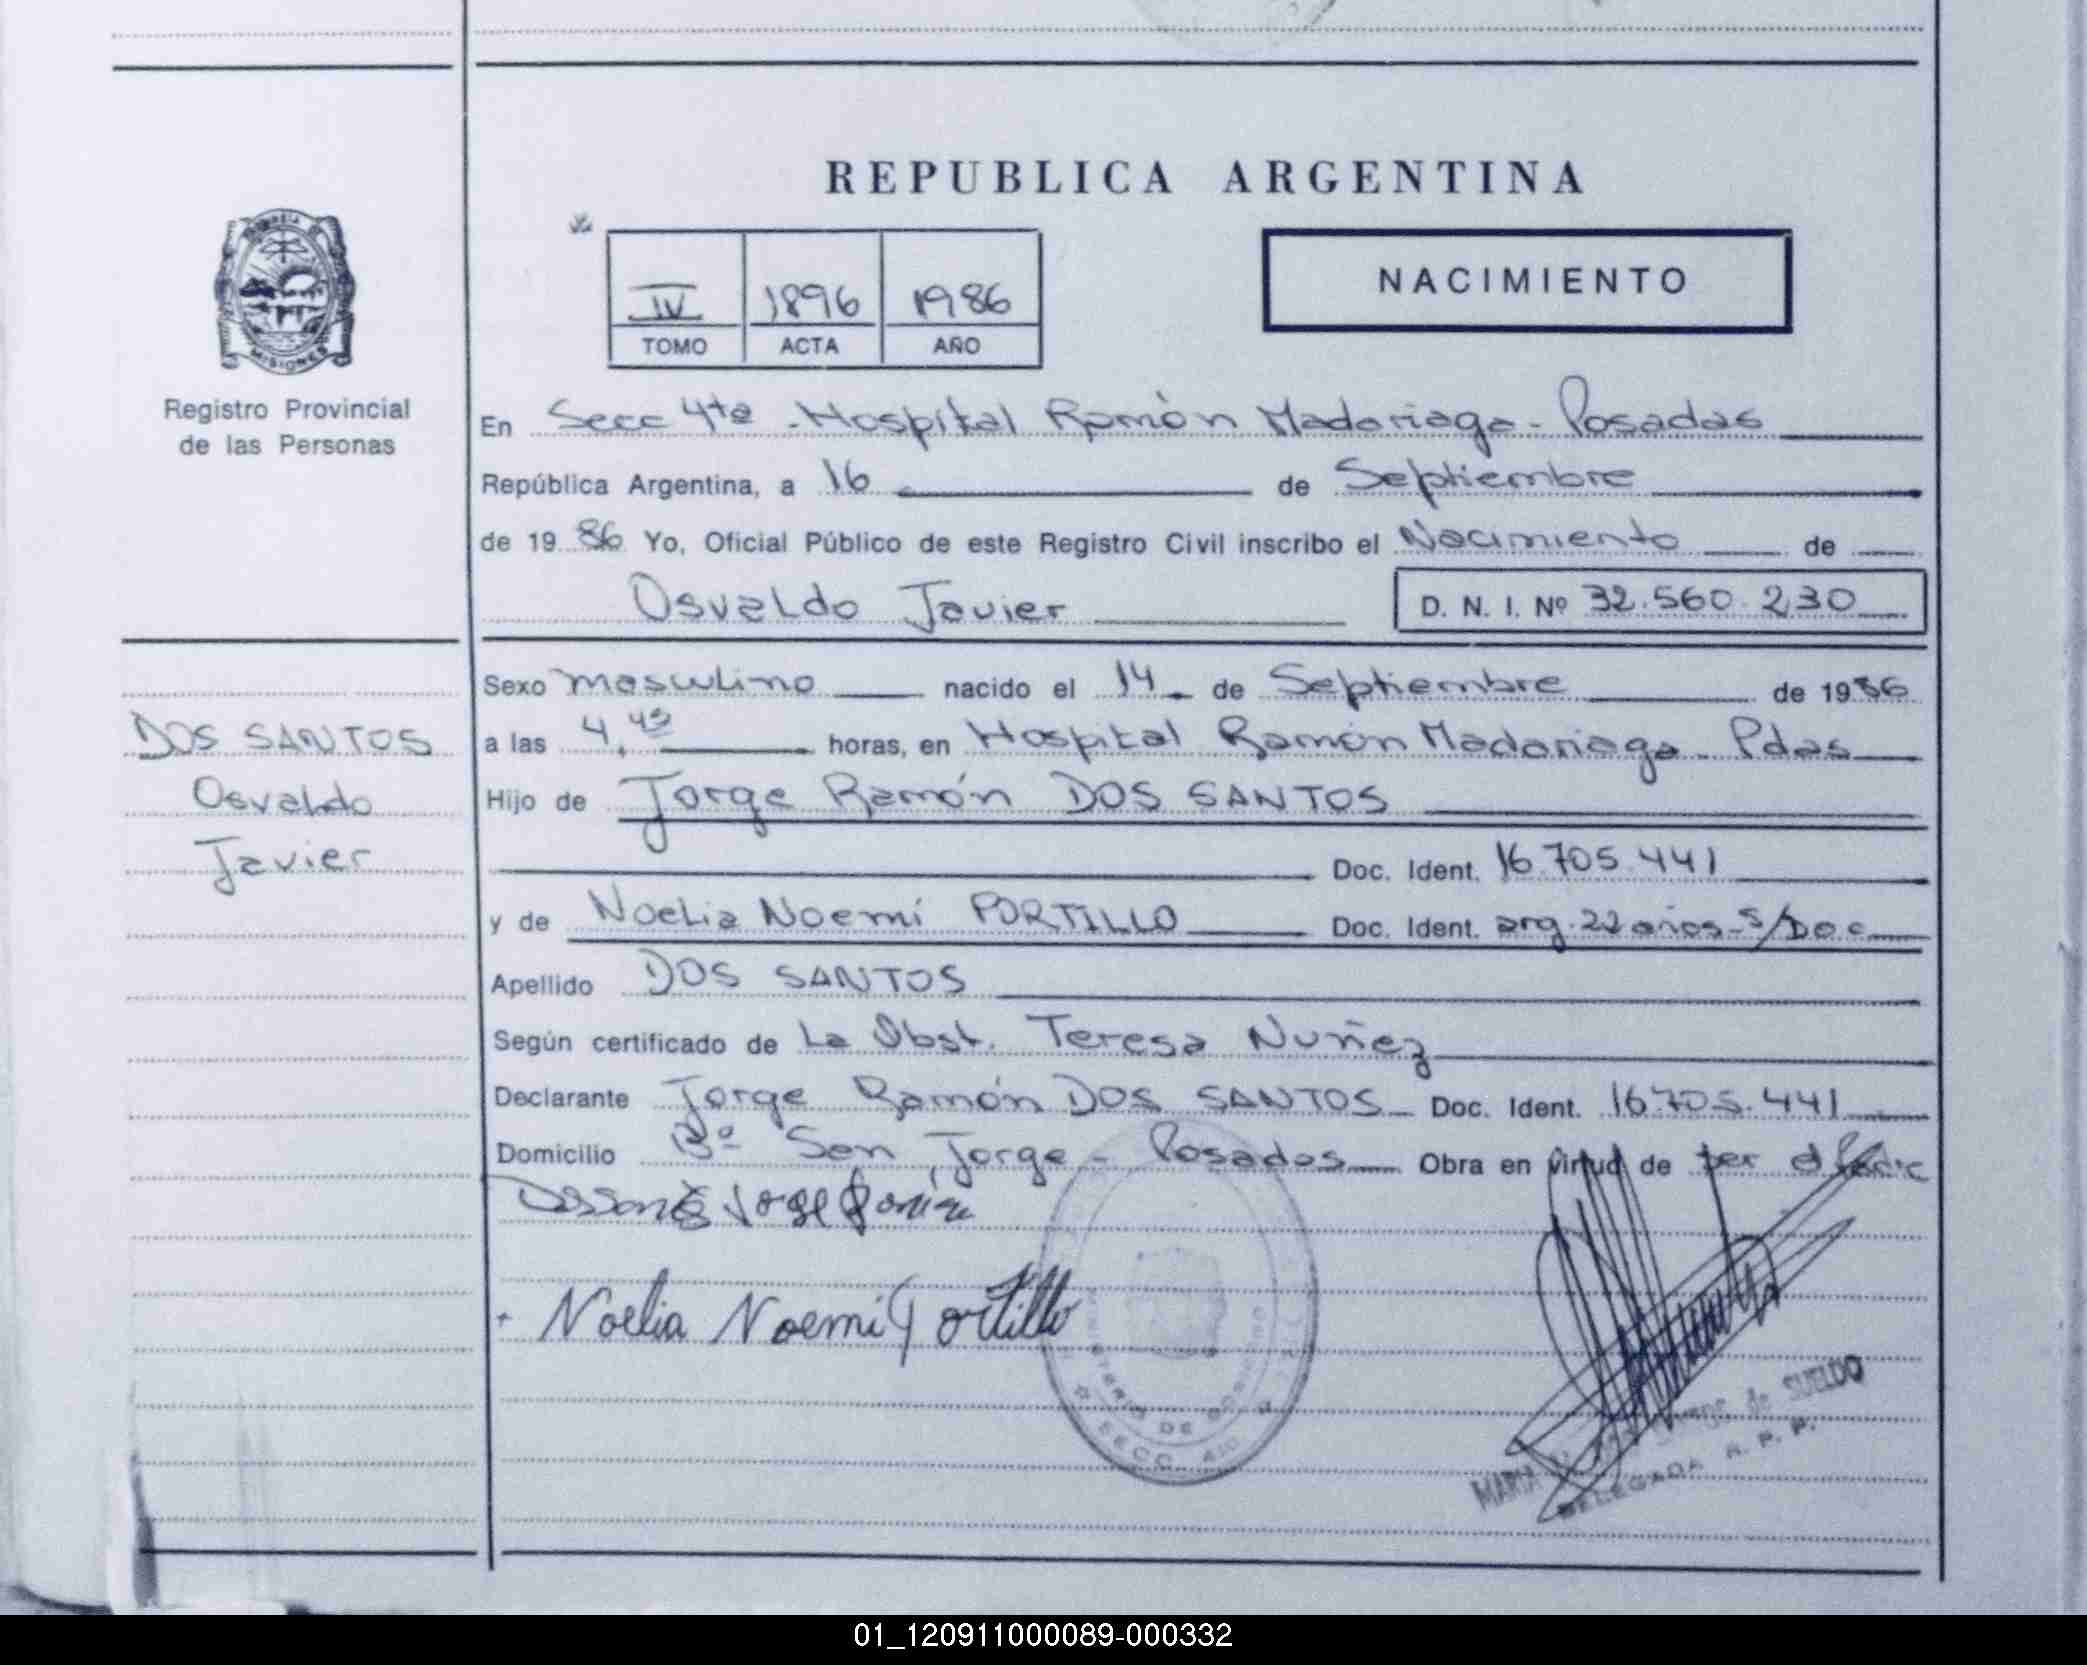 REPUBLICA ARGENTINA
NACIMIENTO
IV 1896 1986
TOMO ACTA AÑO
MISIONES
Registro Provincial
de las Personas
En Secc 4ta - Hospital Ramón Madariaga - Posadas
República Argentina, a 16 de Septiembre
de 1986 Yo, Oficial Público de este Registro Civil inscribo el Nacimiento de
Osvaldo Javier D. N. I. Nº 32.560.230
Sexo masculino nacido el 14 de Septiembre de 1986
DOS SANTOS
Osvaldo
Javier
a las 4,45 horas, en Hospital Ramón Madariaga - Pdas
Hijo de Jorge Ramón DOS SANTOS
Doc. Ident. 16.705.441
y de Noelia Noemí PORTILLO Doc. Ident. arg. 22 años - s/Doc
Apellido DOS SANTOS
Según certificado de La Obst. Teresa Nuñez
Declarante Jorge Ramón DOS SANTOS Doc. Ident. 16.705.441
Domicilio Bº San Jorge - Posadas Obra en virtud de ser el
Jorge Ramón
Noelia Noemi Portillo
MINISTERIO DE GOBIERNO
SECC. 4ta
MARIA de SUELDO
DELEGADA R. P. P.
01_120911000089-000332